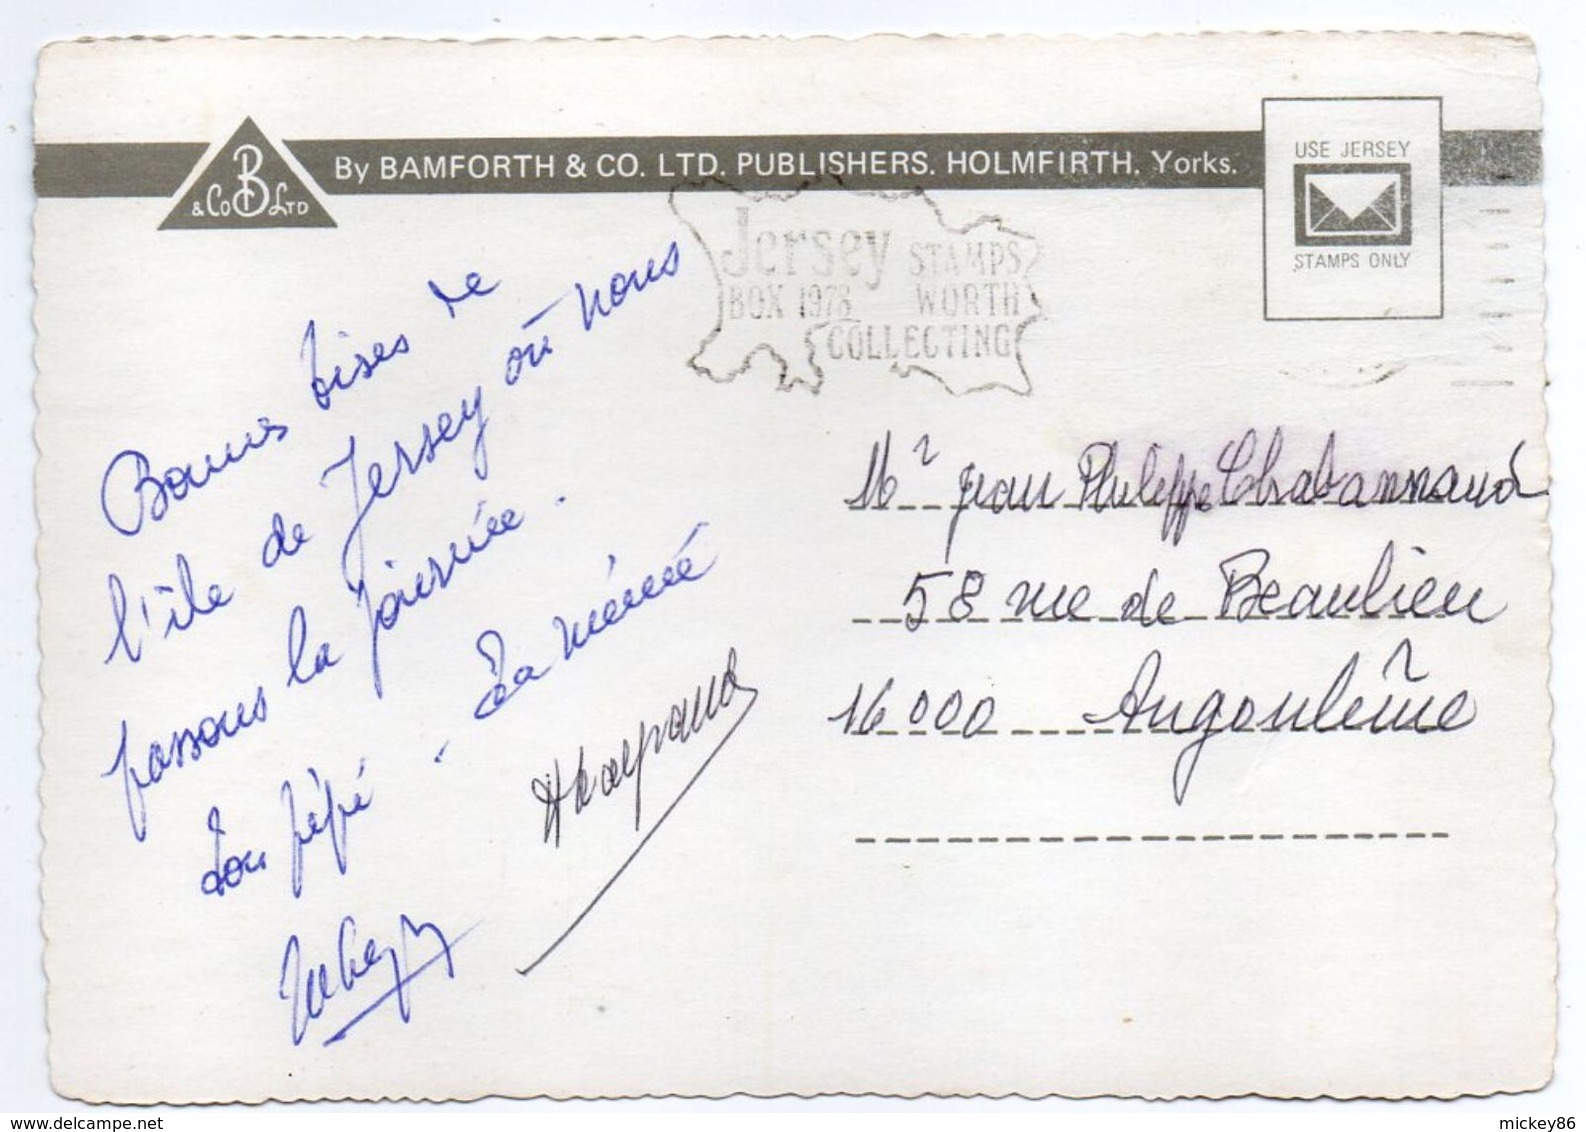 B
& Co Ltd
By BAMFORTH & CO. LTD. PUBLISHERS. HOLMFIRTH. Yorks.
USE JERSEY
STAMPS ONLY
Jersey STAMPS
BOX 1978 WORTH
COLLECTING
Bonnes bises de
l'île de Jersey où nous
passons la journée.
Ton pépé - Ta mémé
Mr Jean Philippe Chabannaud
58 rue de Beaulieu
16000 Angoulême
www.delcampe.net
mickey86